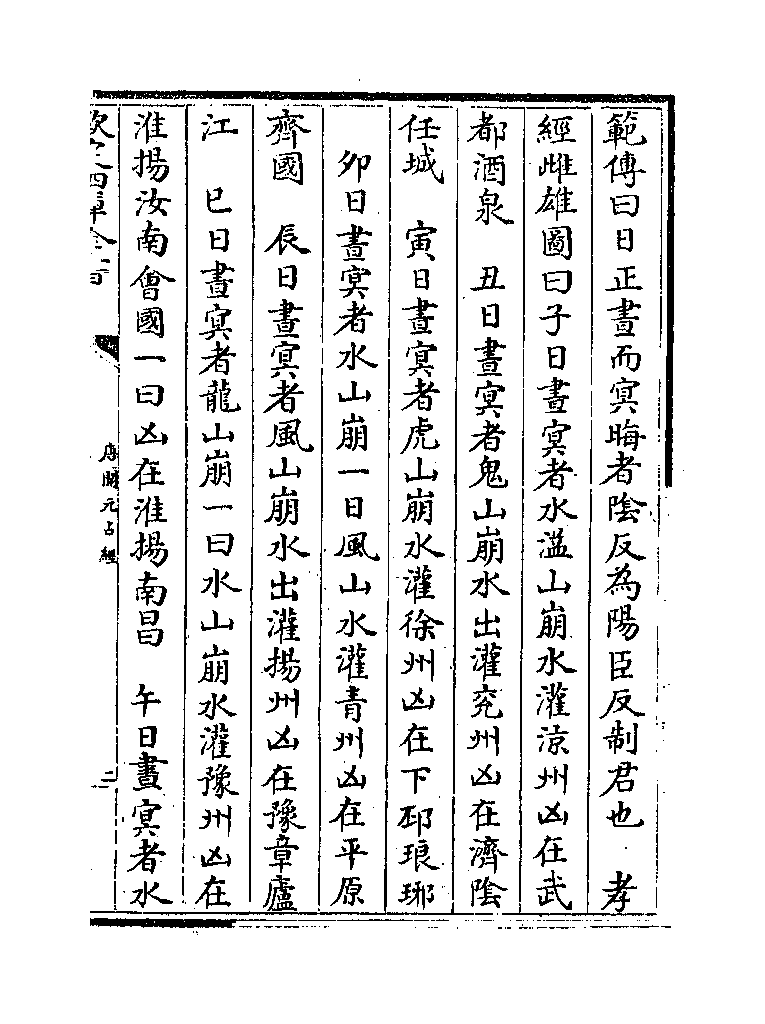 範傳曰日正晝而冥晦者陰反為陽臣反制君也　孝
經雌雄圖曰子日晝冥者水溢山崩水灌涼州凶在武
都酒泉　丑日晝冥者鬼山崩水出灌兖州凶在濟陰
任城　寅日晝冥者虎山崩水灌徐州凶在下邳琅琊
　卯日晝冥者水山崩一曰風山水灌青州凶在平原
齊國　辰日晝冥者風山崩水出灌揚州凶在豫章廬
江　巳日晝冥者龍山崩一曰水山崩水灌豫州凶在
淮揚汝南會國一曰凶在淮揚南昌　午日晝冥者水
欽定四庫全書
唐開元占經
二